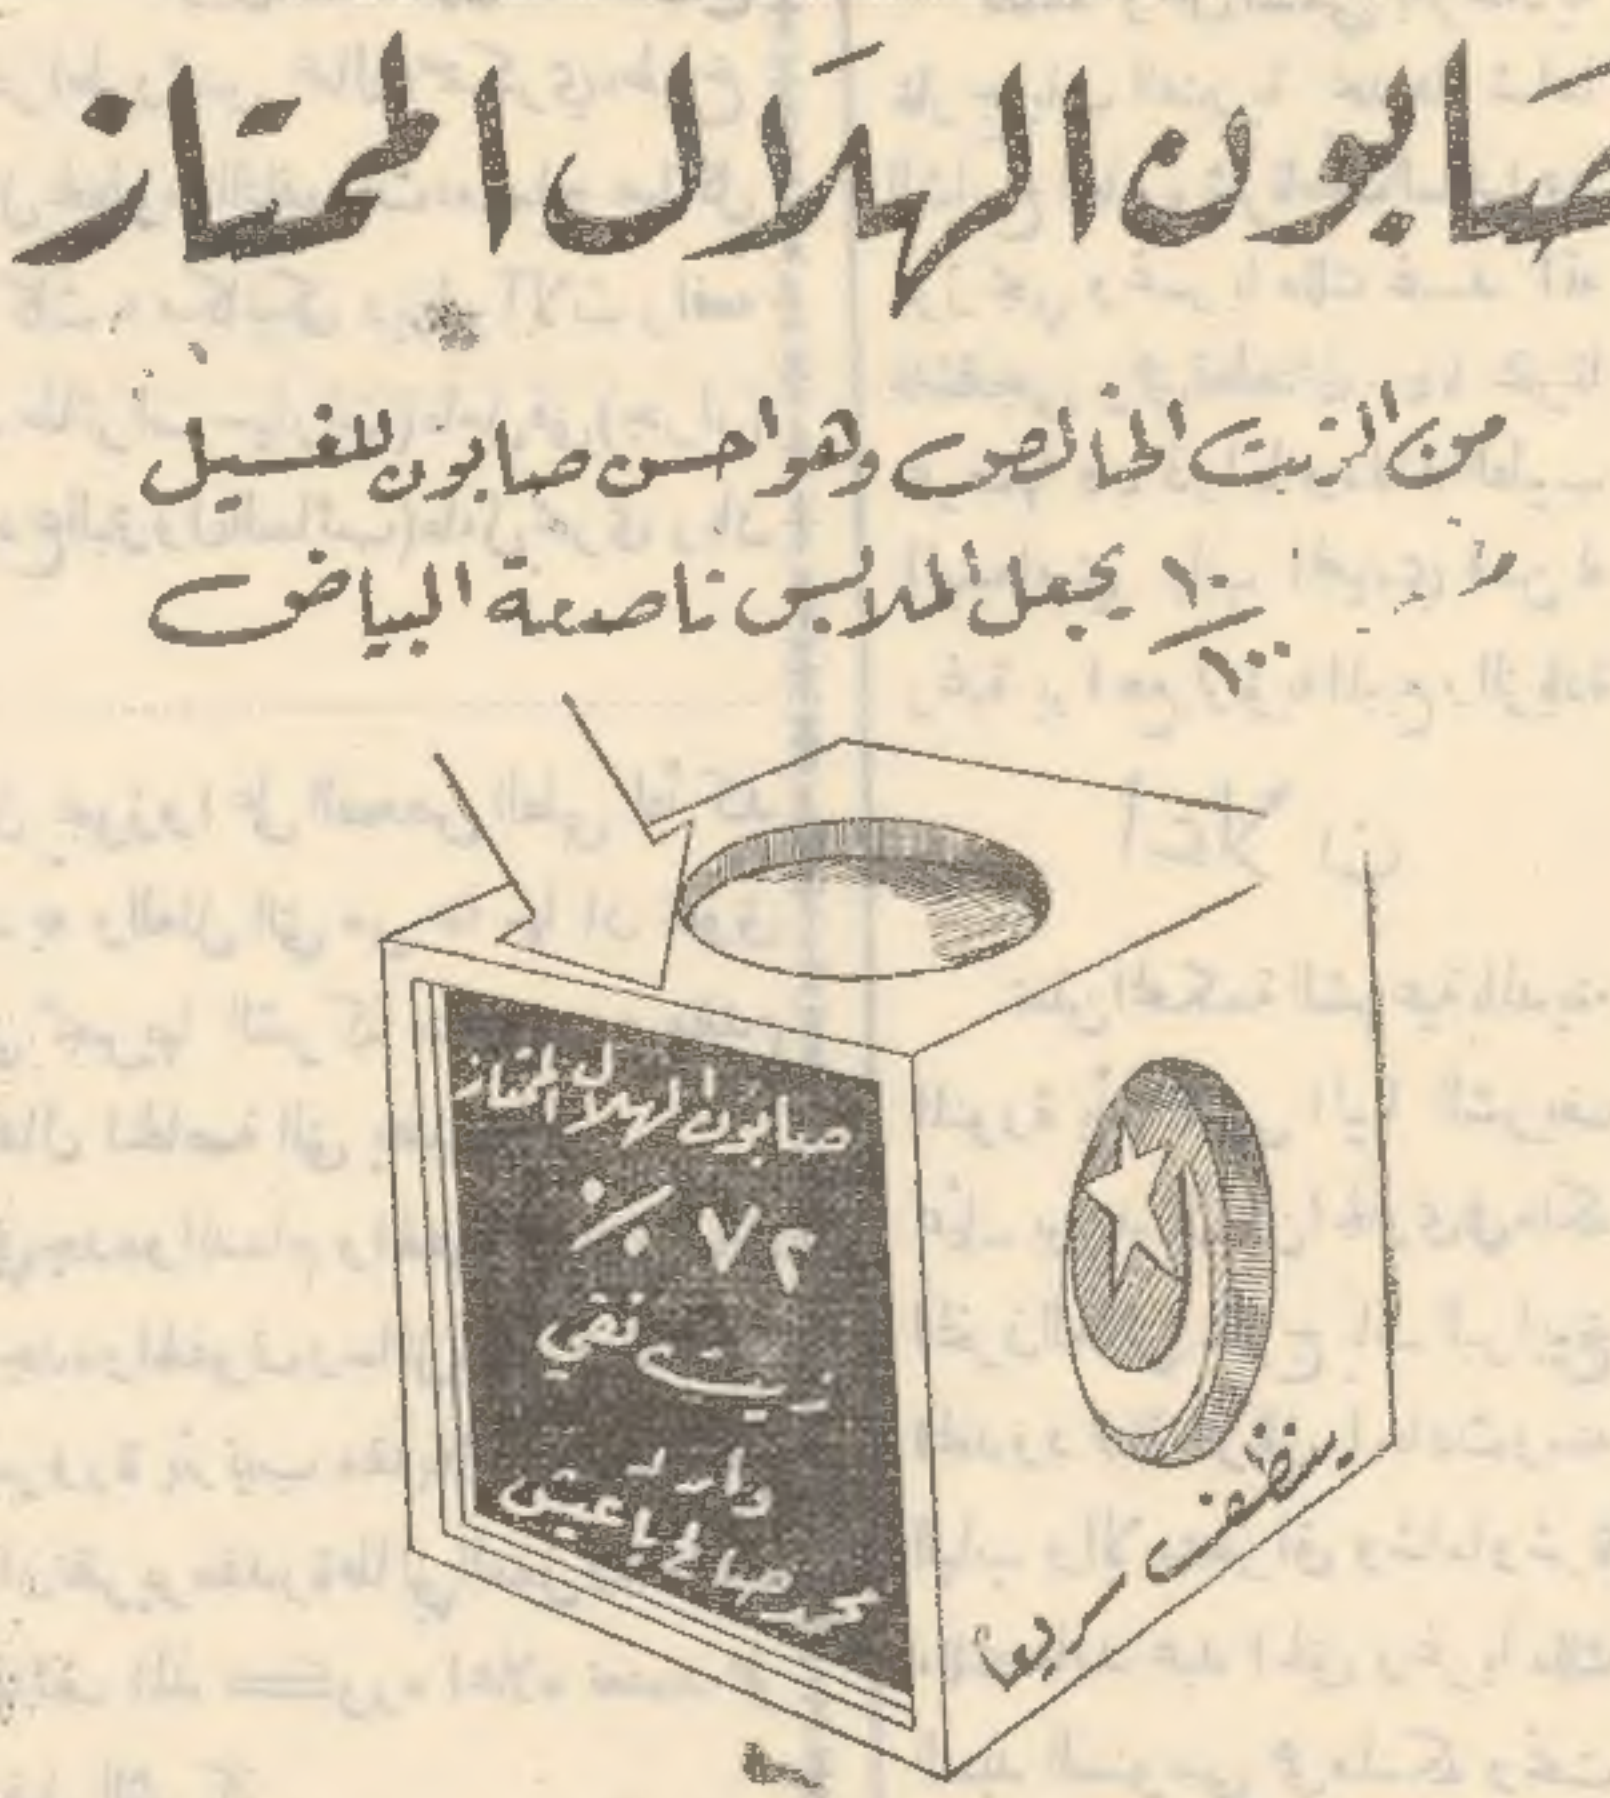 صَابون الهلَال الممتاز
من الزيت الخالص وهو احسن صابون للغسيل
١٠/١٠٠ يجعل الملابس ناصعة البياض
صابون الهلال الممتاز
٧٢ ٪
زيت نقي
وارد
محمد صالح باعيش
ينظف سريعاً